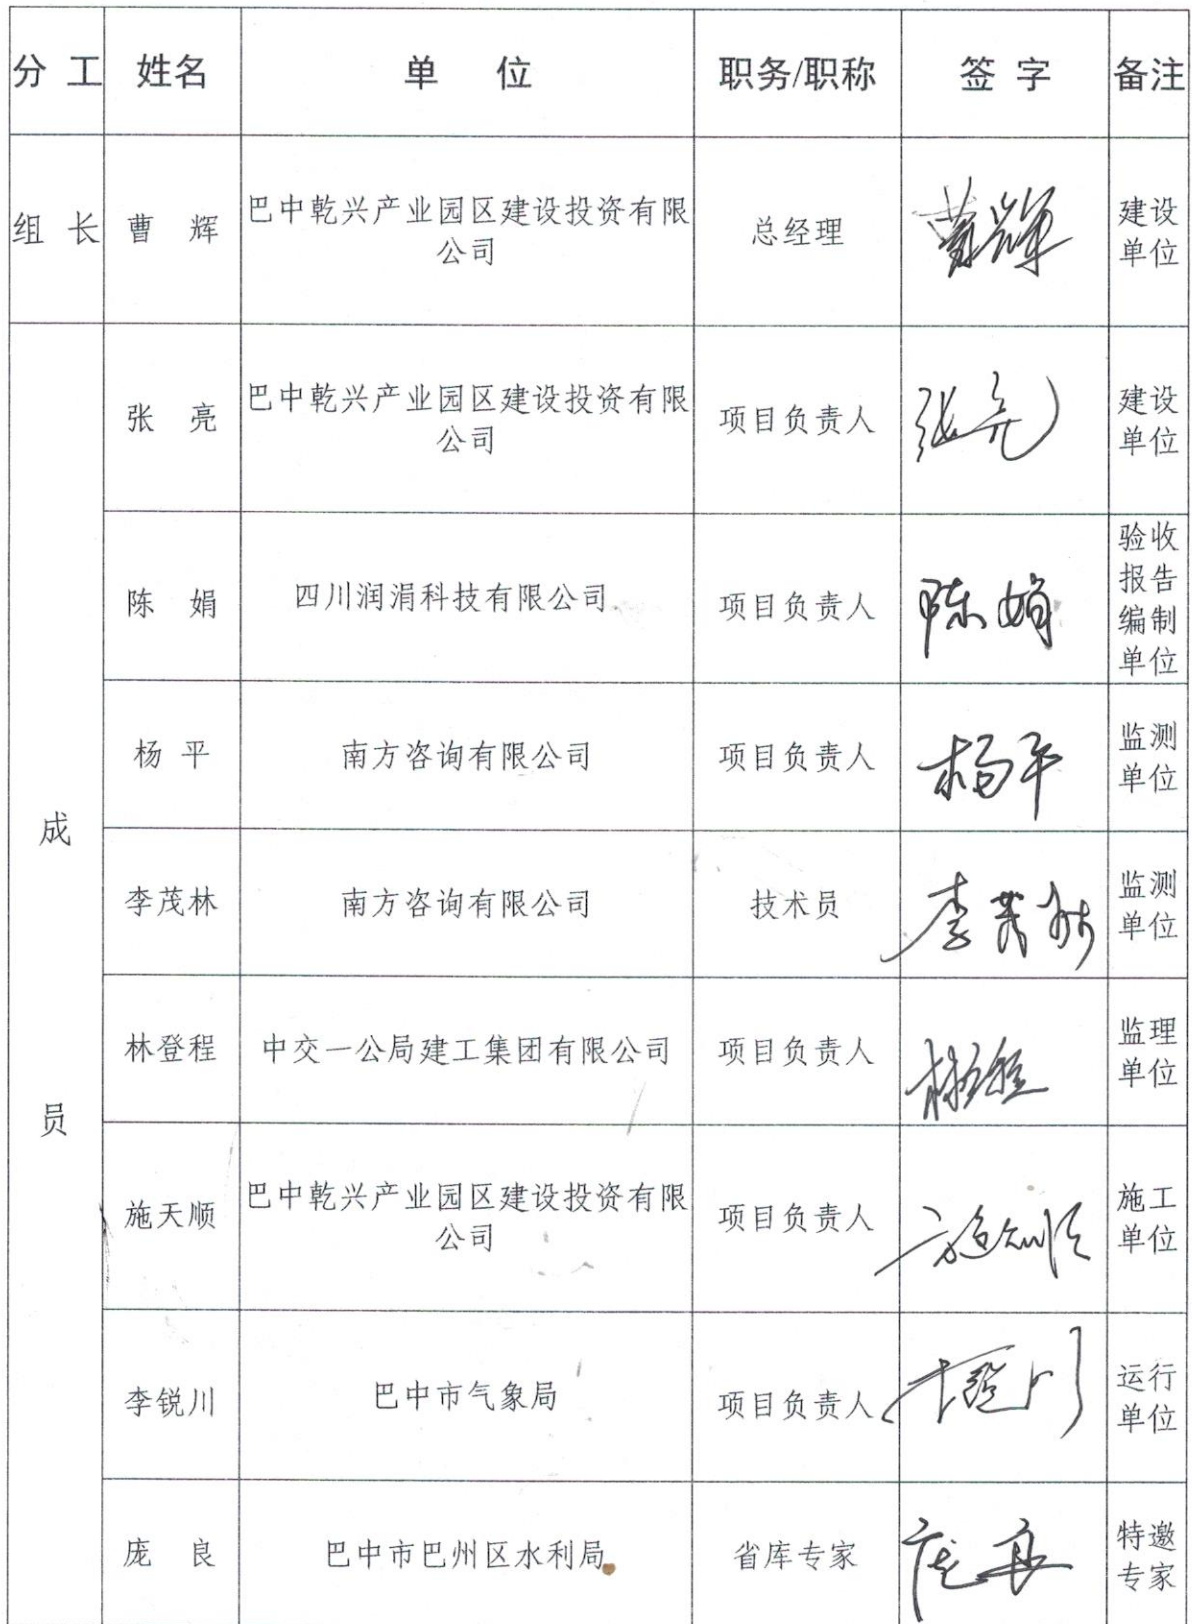 分 工 姓名 单 位 职务/职称 签 字 备注
组 长 曹 辉 巴中乾兴产业园区建设投资有限 总经理 曹辉 建设
公司 单位
张 亮 巴中乾兴产业园区建设投资有限 项目负责人 张亮 建设
公司 单位
陈 娟 四川润涓科技有限公司 项目负责人 陈娟 验收
报告
编制
单位
杨 平 南方咨询有限公司 项目负责人 杨平 监测
单位
成
李茂林 南方咨询有限公司 技术员 李茂林 监测
单位
林登程 中交一公局建工集团有限公司 项目负责人 林登程 监理
单位
员
施天顺 巴中乾兴产业园区建设投资有限 项目负责人 施天顺 施工
公司 单位
李锐川 巴中市气象局 项目负责人 李锐川 运行
单位
庞 良 巴中市巴州区水利局 省库专家 庞良 特邀
专家